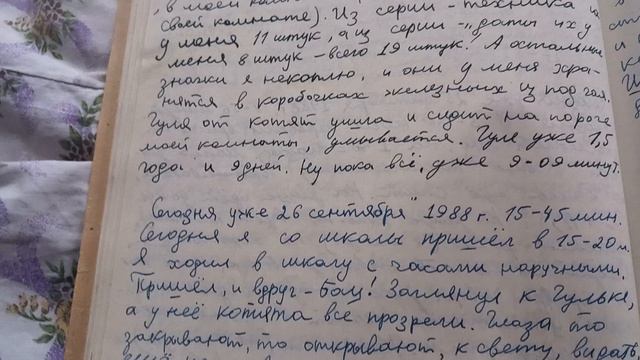 , в моей
своей комнате). Из серии - техника
у меня 11 штук, а из серии - „даты и х у
меня 8 штук - всего 19 штук." А остальные
значки я некоплю, и они у меня хра-
нятся в коробочках железных из под чая.
Гуля от котят ушла и сидит на пороге
моей комнаты, умывается. Гуле уже 1,5
года и 9 дней. Ну пока всё, уже 9-09 минут.
Сегодня уже 26 сентября" 1988 г. 15-45 мин.
Сегодня я со школы пришёл в 15-20 м.
Я ходил в школу с часами наручными.
Пришёл, и вдруг - бац! Заглянул к Гульке,
а у неё котята все прозрели. Глаза то
закрывают, то открывают, к свету, видать